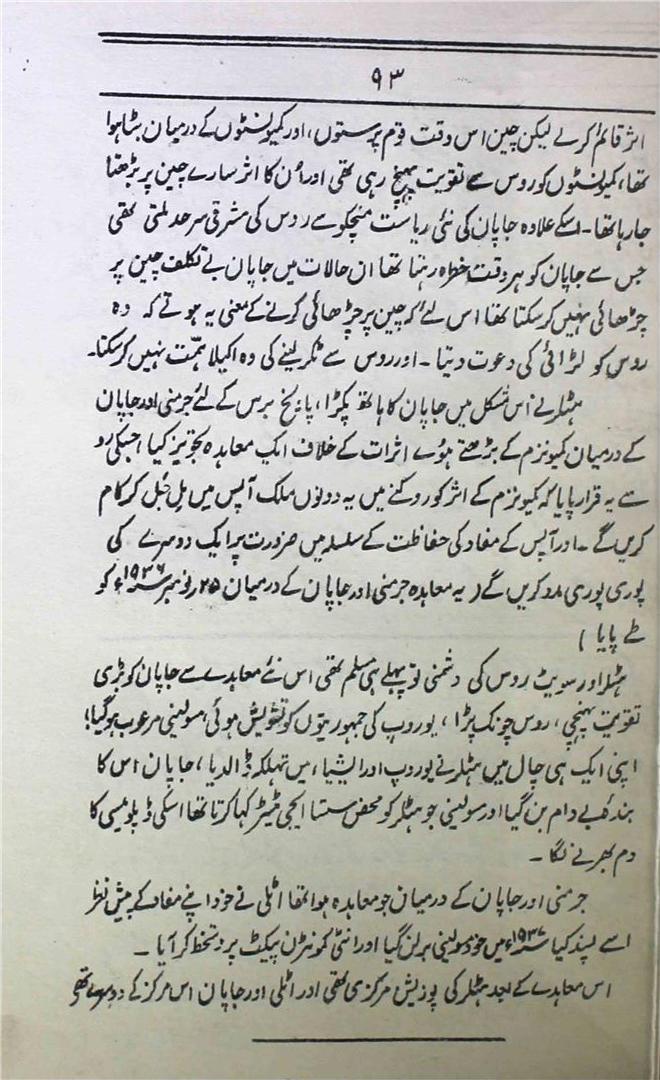 ۹۳
اثر قائم کرلے لیکن چین اس وقت قوم پرستوں، اور کمیونسٹوں کے درمیان بٹا ہوا
تھا، کمیونسٹوں کو روس سے تقویت پہنچ رہی تھی اور اُن کا اثر سارے چین پر بڑھتا
جا رہا تھا۔ اسکے علاوہ جاپان کی نئی ریاست منچکو سے روس کی مشرقی سرحد ملتی تھی
جس سے جاپان کو ہر وقت خطرہ رہتا تھا ان حالات میں جاپان بے تکلف چین پر
چڑھائی نہیں کر سکتا تھا اس لئے کہ چین پر چڑھائی کرنے کے معنی یہ ہوتے کہ وہ
روس کو لڑائی کی دعوت دیتا۔ اور روس سے ٹکر لینے کی وہ اکیلا ہمّت نہیں کر سکتا۔
ہٹلر نے اس شکل میں جاپان کا ہاتھ پکڑا، پانچ برس کے لئے جرمنی اور جاپان
کے درمیان کمیونزم کے بڑھتے ہوئے اثرات کے خلاف ایک معاہدہ تجویز کیا جسکی رو
سے یہ قرار پایا کہ کمیونزم کے اثر کو روکنے میں یہ دونوں ملک آپس میں مِل جُل کر کام
کریں گے۔ اور آپس کے مفاد کی حفاظت کے سلسلہ میں ضرورت پر ایک دوسرے کی
پوری پوری مدد کریں گے (یہ معاہدہ جرمنی اور جاپان کے درمیان ۲۵ نومبر ۱۹۳۶ء کو
طے پایا)
ہٹلر اور سویٹ روس کی دشمنی تو پہلے ہی مسلم تھی اس نئے معاہدے سے جاپان کو بڑی
تقویت پہنچی، روس چونک پڑا، یوروپ کی جمہوریتوں کو تشویش ہوئی، مسولینی مرعوب ہو گیا؛
اپنی ایک ہی چال میں ہٹلر نے یوروپ اور ایشیا، میں تہلکہ ڈالدیا، جاپان اس کا
بندۂ بے دام بن گیا اور مسولینی جو ہٹلر کو محض سستا ایجی ٹیٹر کہا کرتا تھا اسکی ڈپلومیسی کا
دم بھرنے لگا۔
جرمنی اور جاپان کے درمیان جو معاہدہ ہوا تھا اٹلی نے خود اپنے مفاد کے پیش نظر
اسے پسند کیا ۱۹۳۷ء میں خود مسولینی برلن گیا اور انٹی کمونٹرن پیکٹ پر دستخط کر آیا۔
اس معاہدے کے بعد ہٹلر کی پوزیشن مرکزی تھی اور اٹلی اور جاپان اس مرکز کے دو سرے تھے